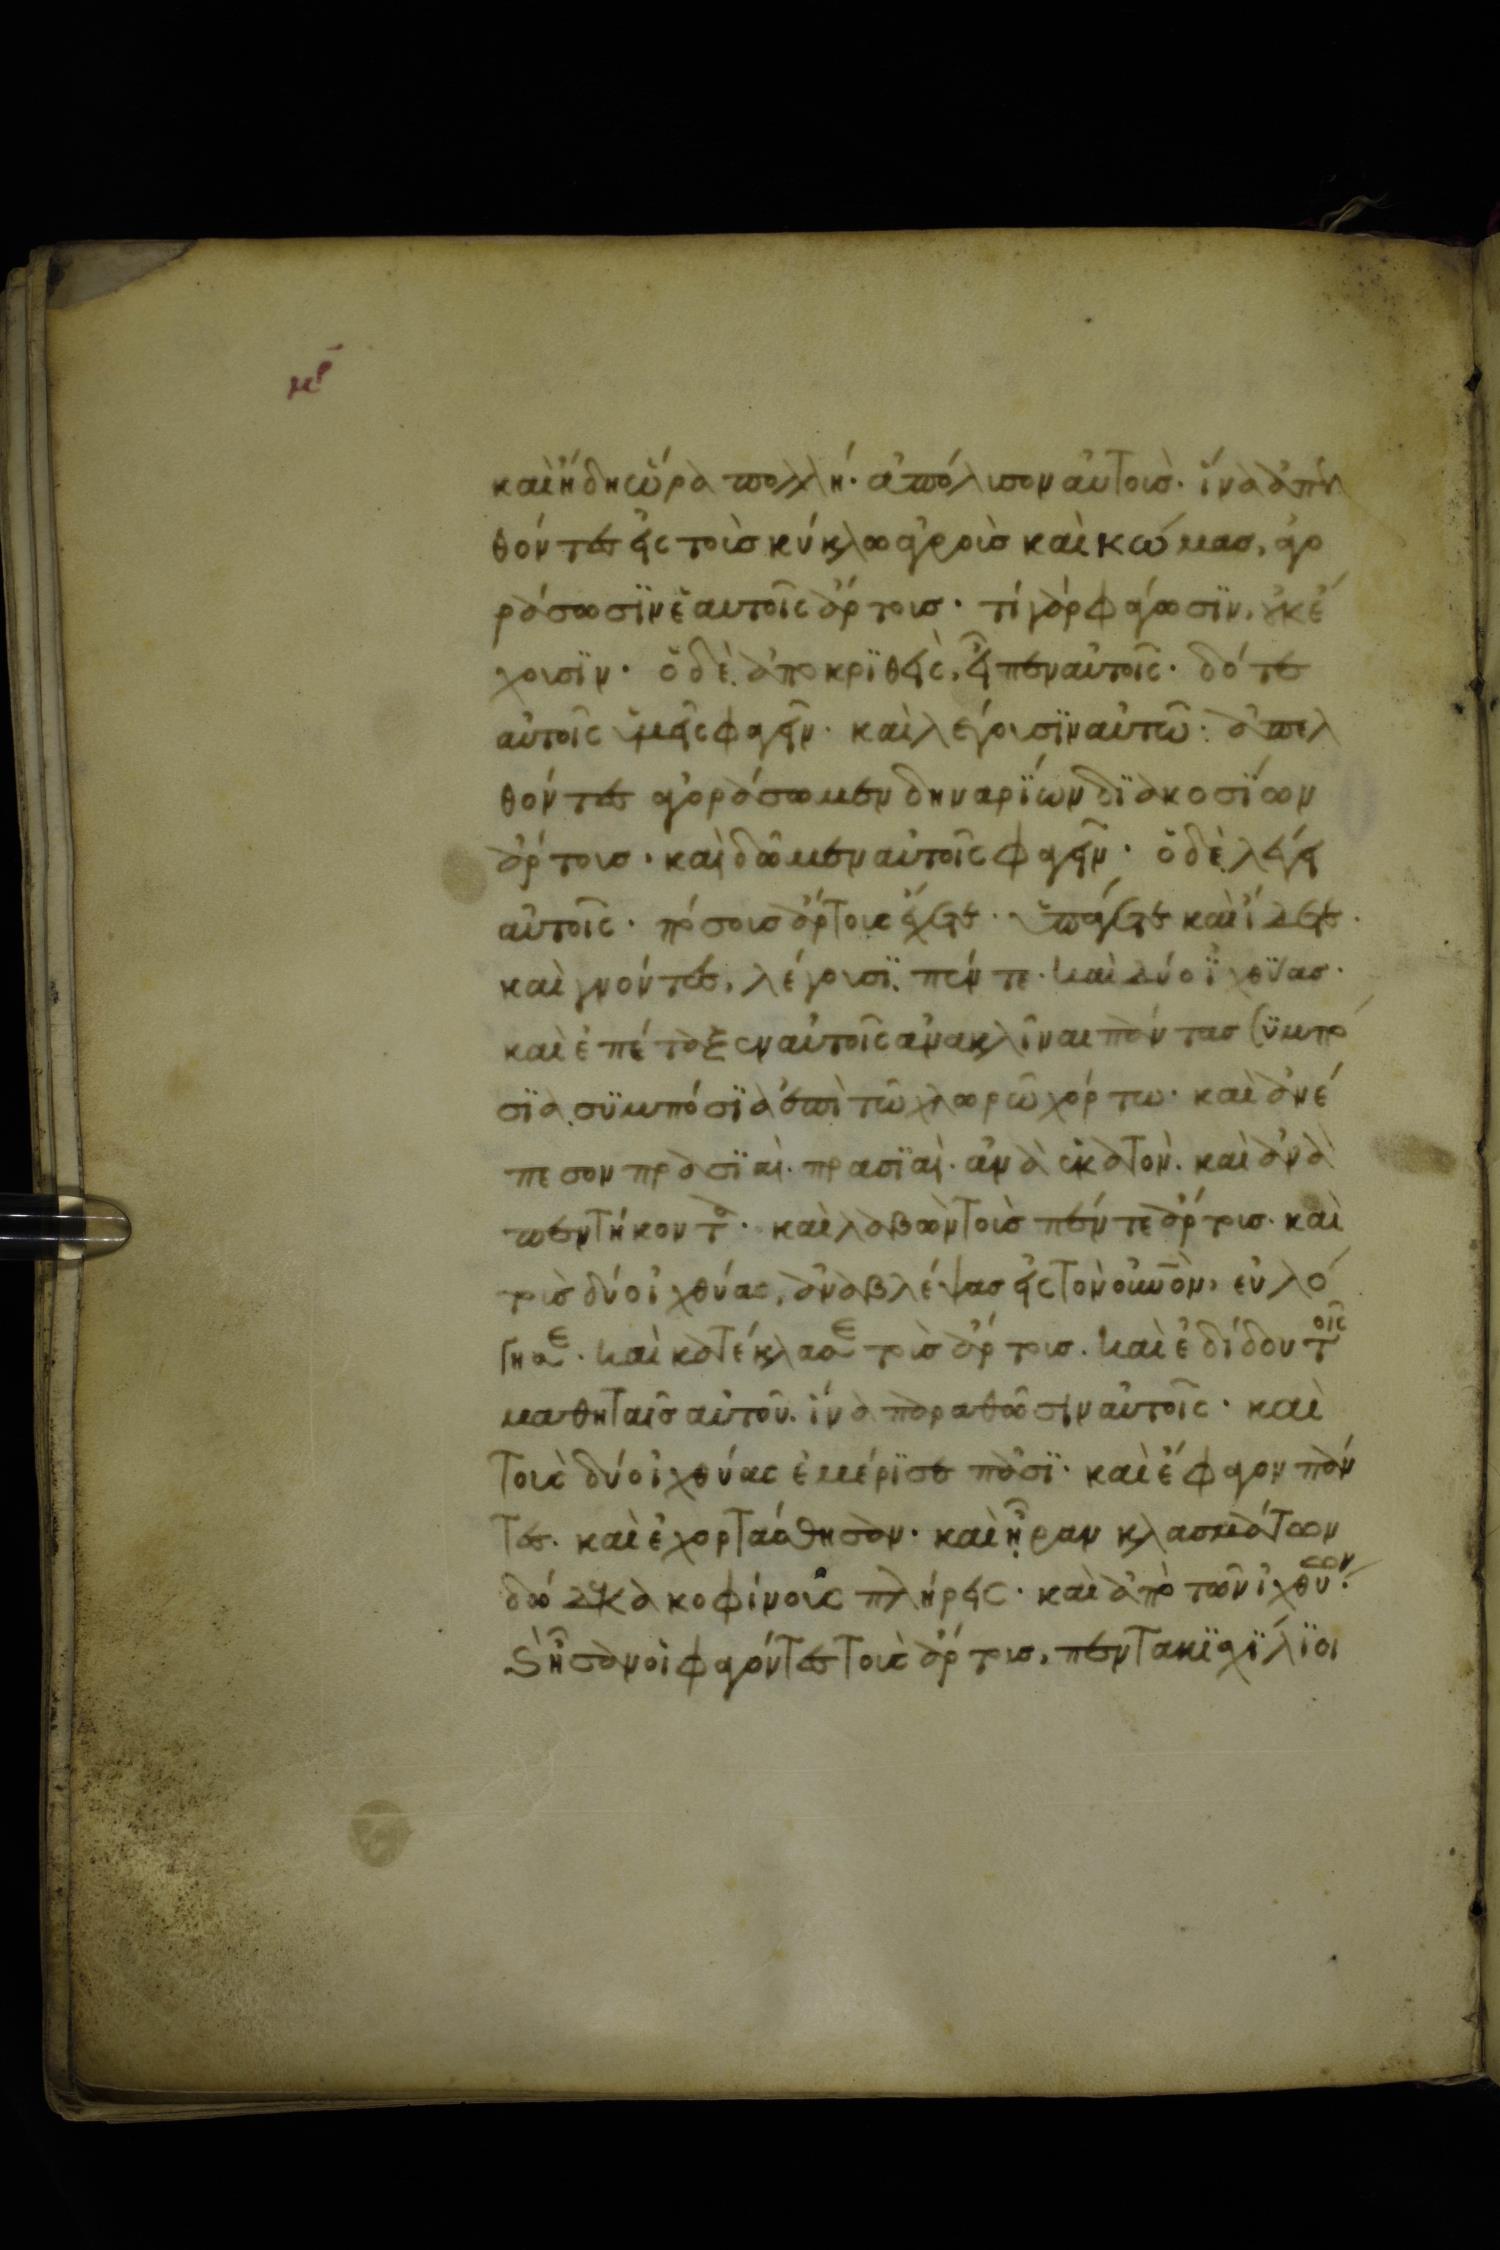 καὶ ἤδη ὥρα πολλή· ἀπόλυσον αὐτοὺς· ἵνα ἀπελ
θόντες εἰς τοὺς κύκλω ἀγροὺς καὶ κώμας, ἀγο
ράσωσϊν ἑαυτοῖς ἄρτους· τί γὰρ φάγωσϊν, οὐκ ἔ
χουσϊν· ὁ δὲ ἀποκρϊθεὶς, εἶπεν αὐτοῖς· δότε
αὐτοῖς ὑμεῖς φαγεῖν· καὶ λέγουσϊν αὐτῶ· ἀπελ
θόντες ἀγοράσωμεν δηναρΐων δϊακοσΐων
ἄρτους· καὶ δῶμεν αὐτοῖς φαγεῖν· ὁ δὲ λέγει
αὐτοῖς· πόσους ἄρτους ἔχετε· ὑπάγετε καὶ ἴδετε·
καὶ γνόντες, λέγουσϊ, πέντε· καὶ δύο ἰχθύας·
καὶ ἐπέταξεν αὐτοῖς ἀνακλῖναι πάντας συμπό
σϊα συμπόσϊα ἐπὶ τῶ χλωρῶ χόρτω· καὶ ἀνέ
πεσον πρασϊαὶ· πρασϊαὶ· ἀνὰ ἑκατὸν· καὶ ἀνὰ
πεντήκοντα· καὶ λαβὼν τοὺς πέντε ἄρτους· καὶ
τοὺς δύο ἰχθύας, ἀναβλέψας εἰς τὸν οὐνὸν, εὐλό
γησε· καὶ κατέκλασε τοὺς ἄρτους· καὶ ἐδίδου τοῖς
μαθηταῖς αὐτοῦ· ἵνα παραθῶσιν αὐτοῖς· καὶ
τοὺς δύο ἰχθύας ἐμέρϊσε πᾶσϊ· καὶ ἔφαγον πάν
τες· καὶ ἐχορτάσθησαν· καὶ ἦραν κλασμάτων
δώδεκα κοφίνους πλήρεις· καὶ ἀπὸ τῶν ἰχθύων·
καὶ ἦσαν οἱ φαγόντες τοὺς ἄρτους, πεντακϊσχΐλϊοι